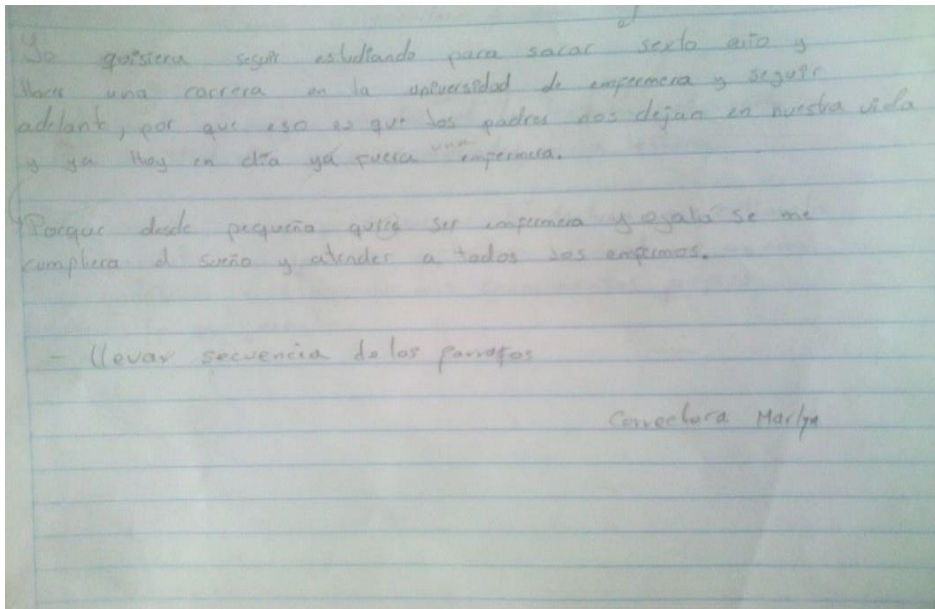 Yo quisiera seguir estudiando para sacar sexto año y
Hacer una carrera en la universidad de empermera y seguir
adelant, por que eso es que los padres nos dejan en nuestra vida
y ya Hoy en día ya fuera una empermera.
Porque desde pequeña quise ser empermera y ojalá se me
cumpliera el sueño y atender a todos los empermos.
- llevar secuencia de los parrafos
Correctora Marlyn